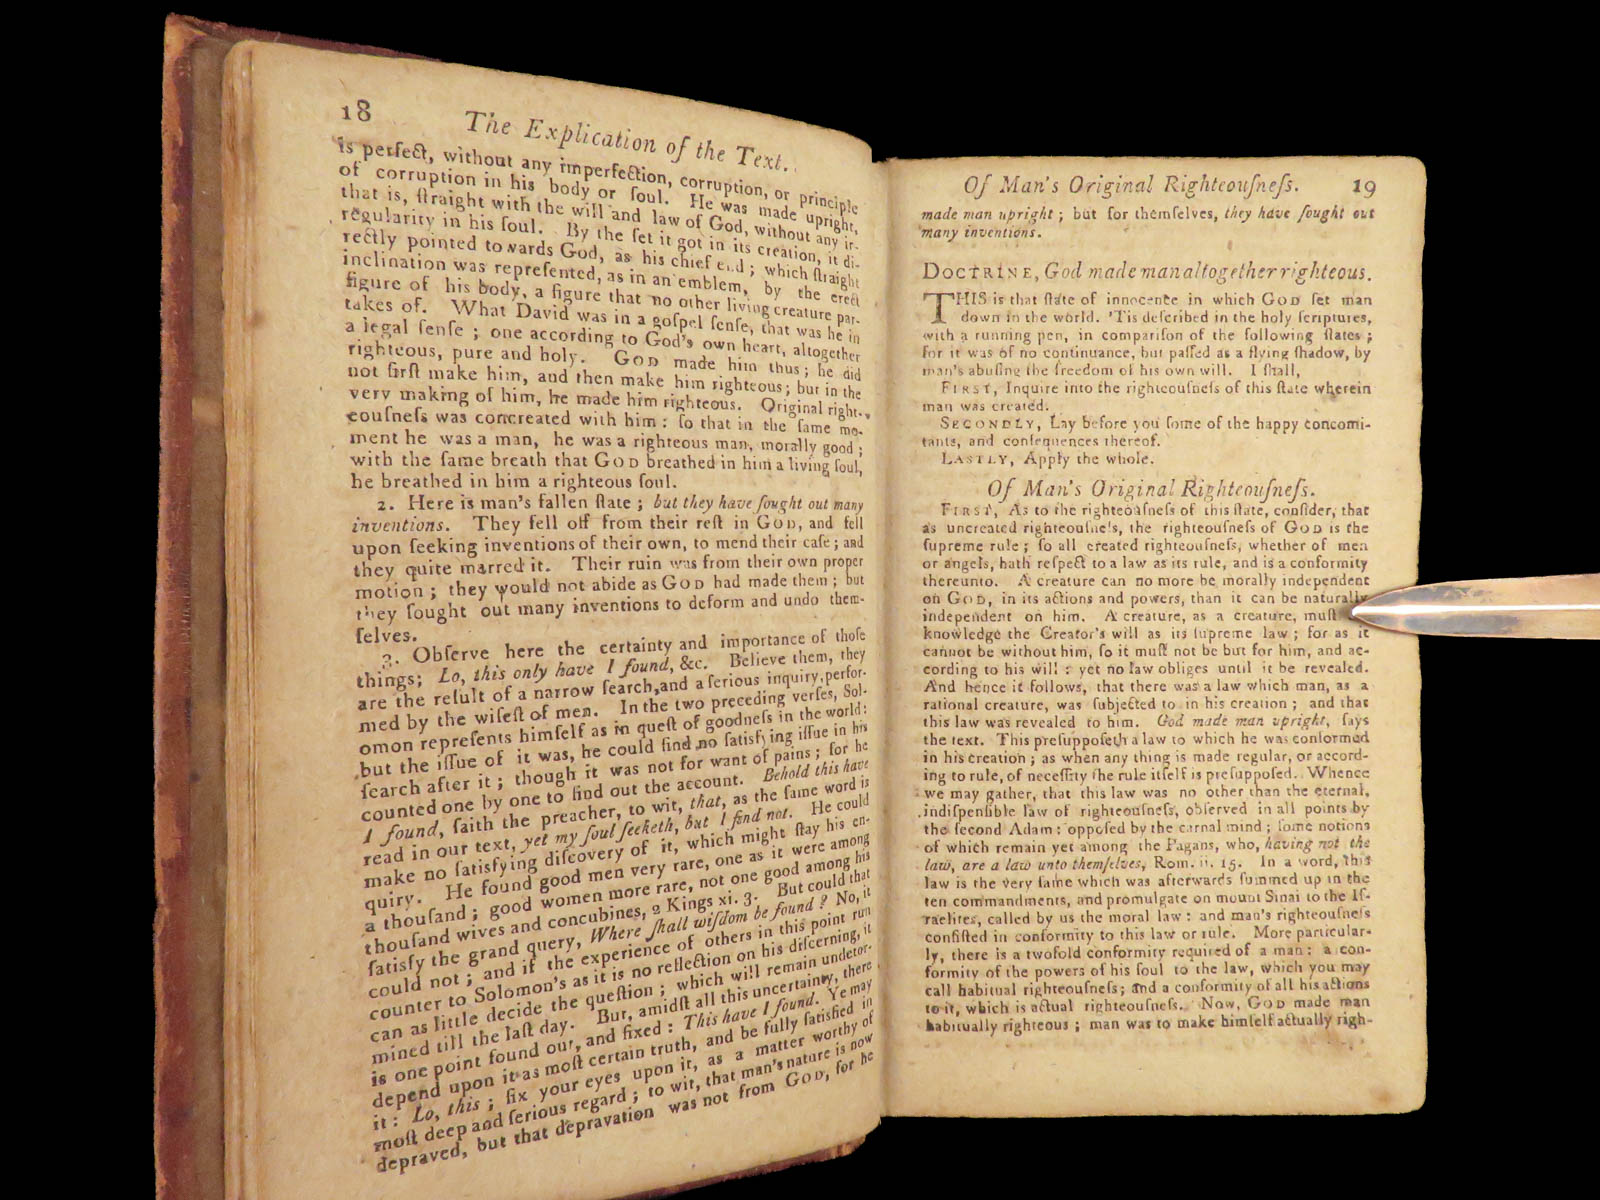 18
The Explication of the Text.
is perfect, without any imperfection, corruption, or principle
of corruption in his body or ſoul. He was made upright,
that is, ſtraight with the will and law of God, without any ir-
regularity in his ſoul. By the ſet it got in its creation, it di-
rectly pointed towards God, as his chief end; which ſtraight
inclination was repreſented, as in an emblem, by the erect
figure of his body, a figure that no other living creature par-
takes of. What David was in a goſpel ſenſe, that was he in
a legal ſenſe; one according to God's own heart, altogether
righteous, pure and holy. GOD made him thus; he did
not firſt make him, and then make him righteous; but in the
very making of him, he made him righteous. Original right-
eouſneſs was concreated with him: ſo that in the ſame mo-
ment he was a man, he was a righteous man, morally good;
with the ſame breath that GOD breathed in him a living ſoul,
he breathed in him a righteous ſoul.
2. Here is man's fallen ſtate; but they have ſought out many
inventions. They fell off from their reſt in GOD, and fell
upon ſeeking inventions of their own, to mend their caſe; and
they quite marred it. Their ruin was from their own proper
motion; they would not abide as GOD had made them; but
they ſought out many inventions to deform and undo them-
ſelves.
3. Obſerve here the certainty and importance of thoſe
things; Lo, this only have I found, &c. Believe them, they
are the reſult of a narrow ſearch, and a ſerious inquiry, perfor-
med by the wiſeſt of men. In the two preceding verſes, Sol-
omon repreſents himſelf as in queſt of goodneſs in the world:
but the iſſue of it was, he could find no ſatisfying iſſue in his
ſearch after it; though it was not for want of pains; for he
counted one by one to find out the account. Behold this have
I found, ſaith the preacher, to wit, that, as the ſame word is
read in our text, yet my ſoul ſeeketh, but I find not. He could
make no ſatisfying diſcovery of it, which might ſtay his en-
quiry. He found good men very rare, one as it were among
a thouſand; good women more rare, not one good among his
thouſand wives and concubines, 2 Kings xi. 3. But could that
ſatisfy the grand query, Where ſhall wiſdom be found? No, it
could not; and if the experience of others in this point run
counter to Solomon's as it is no reflection on his diſcerning, it
can as little decide the queſtion; which will remain undeter-
mined till the laſt day. But, amidſt all this uncertainty, there
is one point found out, and fixed: This have I found. Ye may
depend upon it as moſt certain truth, and be fully ſatisfied in
it: Lo, this; fix your eyes upon it, as a matter worthy of
moſt deep and ſerious regard; to wit, that man's nature is now
depraved, but that depravation was not from GOD, for he
Of Man's Original Righteouſneſs. 19
made man upright; but for themſelves, they have ſought out
many inventions.
DOCTRINE, God made man altogether righteous.
THIS is that ſtate of innocence in which GOD ſet man
down in the world. 'Tis deſcribed in the holy ſcriptures,
with a running pen, in compariſon of the following ſtates;
for it was of no continuance, but paſſed as a flying ſhadow, by
man's abuſing the freedom of his own will. I ſhall,
FIRST, Inquire into the righteouſneſs of this ſtate wherein
man was created.
SECONDLY, Lay before you ſome of the happy concomi-
tants, and conſequences thereof.
LASTLY, Apply the whole.
Of Man's Original Righteouſneſs.
FIRST, As to the righteouſneſs of this ſtate, conſider, that
as uncreated righteouſneſs, the righteouſneſs of GOD is the
ſupreme rule; ſo all created righteouſneſs, whether of men
or angels, hath reſpect to a law as its rule, and is a conformity
thereunto. A creature can no more be morally independent
on GOD, in its actions and powers, than it can be naturally
independent on him. A creature, as a creature, muſt
knowledge the Creator's will as its ſupreme law; for as it
cannot be without him, ſo it muſt not be but for him, and ac-
cording to his will: yet no law obliges until it be revealed.
And hence it follows, that there was a law which man, as a
rational creature, was ſubjected to in his creation; and that
this law was revealed to him. God made man upright, ſays
the text. This preſuppoſeth a law to which he was conformed
in his creation; as when any thing is made regular, or accord-
ing to rule, of neceſſity the rule itſelf is preſuppoſed. Whence
we may gather, that this law was no other than the eternal,
indiſpenſible law of righteouſneſs, obſerved in all points by
the ſecond Adam: oppoſed by the carnal mind; ſome notions
of which remain yet among the Pagans, who, having not the
law, are a law unto themſelves, Rom. ii. 15. In a word, this
law is the very ſame which was afterwards ſummed up in the
ten commandments, and promulgate on mount Sinai to the Iſ-
raelites, called by us the moral law: and man's righteouſneſs
conſiſted in conformity to this law or rule. More particular-
ly, there is a twofold conformity required of a man: a con-
formity of the powers of his ſoul to the law, which you may
call habitual righteouſneſs; and a conformity of all his actions
to it, which is actual righteouſneſs. Now, GOD made man
habitually righteous; man was to make himſelf actually righ-